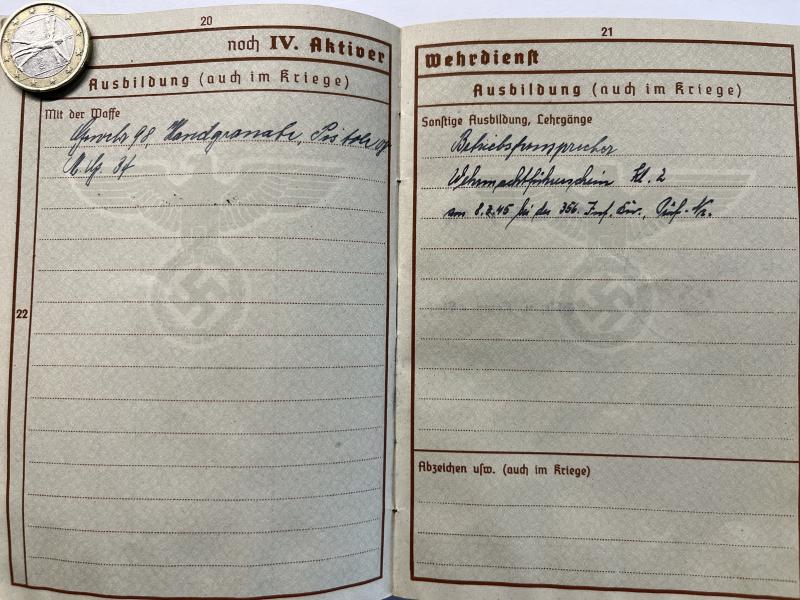 20
noch IV. Aktiver
Ausbildung (auch im Kriege)
Mit der Waffe
Gewehr 98, Handgranate, Pistole
M.G. 34
22
21
Wehrdienst
Ausbildung (auch im Kriege)
Sonstige Ausbildung, Lehrgänge
Betriebsfernsprecher
Wehrmachtführerschein Kl. 2
am 8.2.45 bei der 356. Inf. Div., Prüf.-Nr.
Abzeichen usw. (auch im Kriege)